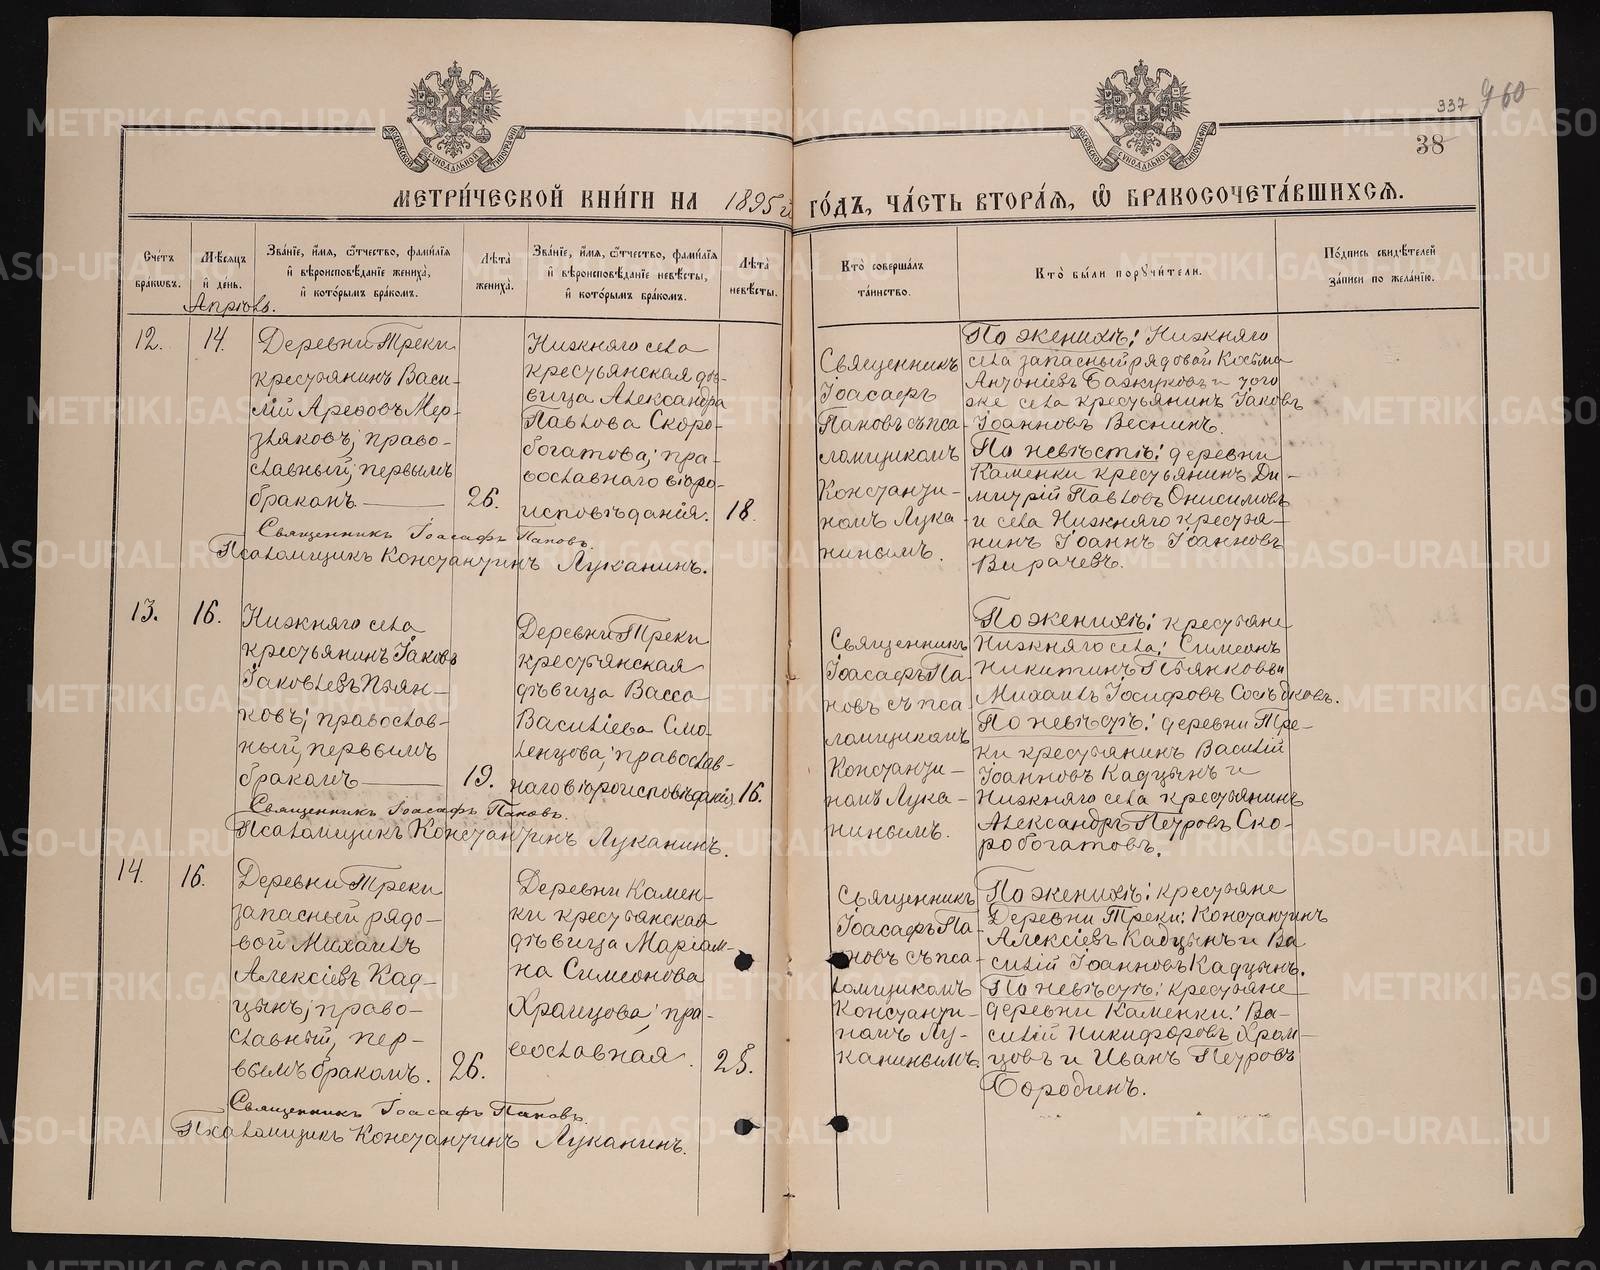 337 960
38
МОСКОВСКОЙ СУНОДАЛЬНОЙ ТИПОГРАФІИ
МОСКОВСКОЙ СУНОДАЛЬНОЙ ТИПОГРАФІИ
МЕТРИ́ЧЕСКОЙ КНИ́ГИ НА 1895 г. ГО́ДЪ, ЧА́СТЬ ВТОРА́Я, Ѿ БРАКОСОЧЕТА́ВШИХСѦ.
Сче́тъ бра́кѡвъ.
Мѣ́сѧцъ и҆ де́нь.
Зва́нїе, и҆́мѧ, ѻ҆́тчество, фами́лїѧ и҆ вѣроисповѣ́данїе жениха̀, и҆ кото́рымъ бра́комъ.
Лѣ́та жениха̀.
Зва́нїе, и҆́мѧ, ѻ҆́тчество, фами́лїѧ и҆ вѣроисповѣ́данїе невѣ́сты, и҆ кото́рымъ бра́комъ.
Лѣ́та невѣ́сты.
Кто̀ соверша́лъ та́инство.
Кто̀ бы́ли порꙋчи́тели.
По́дпись свидѣ́телей за́писи по жела́нїю.
Апрѣль.
12.
14.
Деревни Треки
крестьянинъ Васи-
лій Арефовъ Мер-
зляковъ; право-
славный, первымъ
бракомъ
26.
Нижняго села
крестьянская дѣ-
вица Александра
Павлова Скоро-
богатова; пра-
вославнаго вѣро-
исповѣданія.
18.
Священникъ
Іоасафъ
Пановъ съ пса-
ломщикомъ
Константи-
номъ Лука-
нинымъ.
По женихѣ: Нижняго
села запасный рядовой Косьма
Антоніевъ Бажуковъ и того
же села крестьянинъ Іаковъ
Іоанновъ Веснинъ.
По невѣстѣ: деревни
Каменки крестьянинъ Ди-
митрій Павловъ Онисимовъ
и села Нижняго крестья-
нинъ Іоаннъ Іоанновъ
Вирачевъ.
Священникъ Іоасафъ Пановъ.
Псаломщикъ Константинъ Луканинъ.
13.
16.
Нижняго села
крестьянинъ Іаковъ
Іаковлевъ Пьян-
ковъ; православ-
ный, первымъ
бракомъ
19.
Деревни Треки
крестьянская
дѣвица Васса
Василіева Смо-
ленцова; православ-
наго вѣроисповѣданія
16.
Священникъ
Іоасафъ Па-
новъ съ пса-
ломщикомъ
Константи-
номъ Лука-
нинымъ.
По женихѣ: крестьяне
Нижняго села: Симеонъ
Никитинъ Пьянковъ и
Михаилъ Іосифовъ Сосѣдковъ.
По невѣстѣ: деревни Тре-
ки крестьянинъ Василій
Іоанновъ Кадцынъ и
Нижняго села крестьянинъ
Александръ Петровъ Ско-
робогатовъ.
Священникъ Іоасафъ Пановъ.
Псаломщикъ Константинъ Луканинъ.
14.
16.
Деревни Треки
запасный рядо-
вой Михаилъ
Алексіевъ Кад-
цынъ; право-
славный, пер-
вымъ бракомъ.
26.
Деревни Камен-
ки крестьянская
дѣвица Маріам-
на Симеонова
Храмцова; пра-
вославная.
25.
Священникъ
Іоасафъ Па-
новъ съ пса-
ломщикомъ
Константи-
номъ Лу-
канинымъ.
По женихѣ: крестьяне
Деревни Треки: Константинъ
Алексіевъ Кадцынъ и Ва-
силій Іоанновъ Кадцынъ.
По невѣстѣ: крестьяне
деревни Каменки: Ва-
силій Никифоровъ Храм-
цовъ и Иванъ Петровъ
Бородинъ.
Священникъ Іоасафъ Пановъ.
Псаломщикъ Константинъ Луканинъ.
METRIKI.GASO-URAL.RU